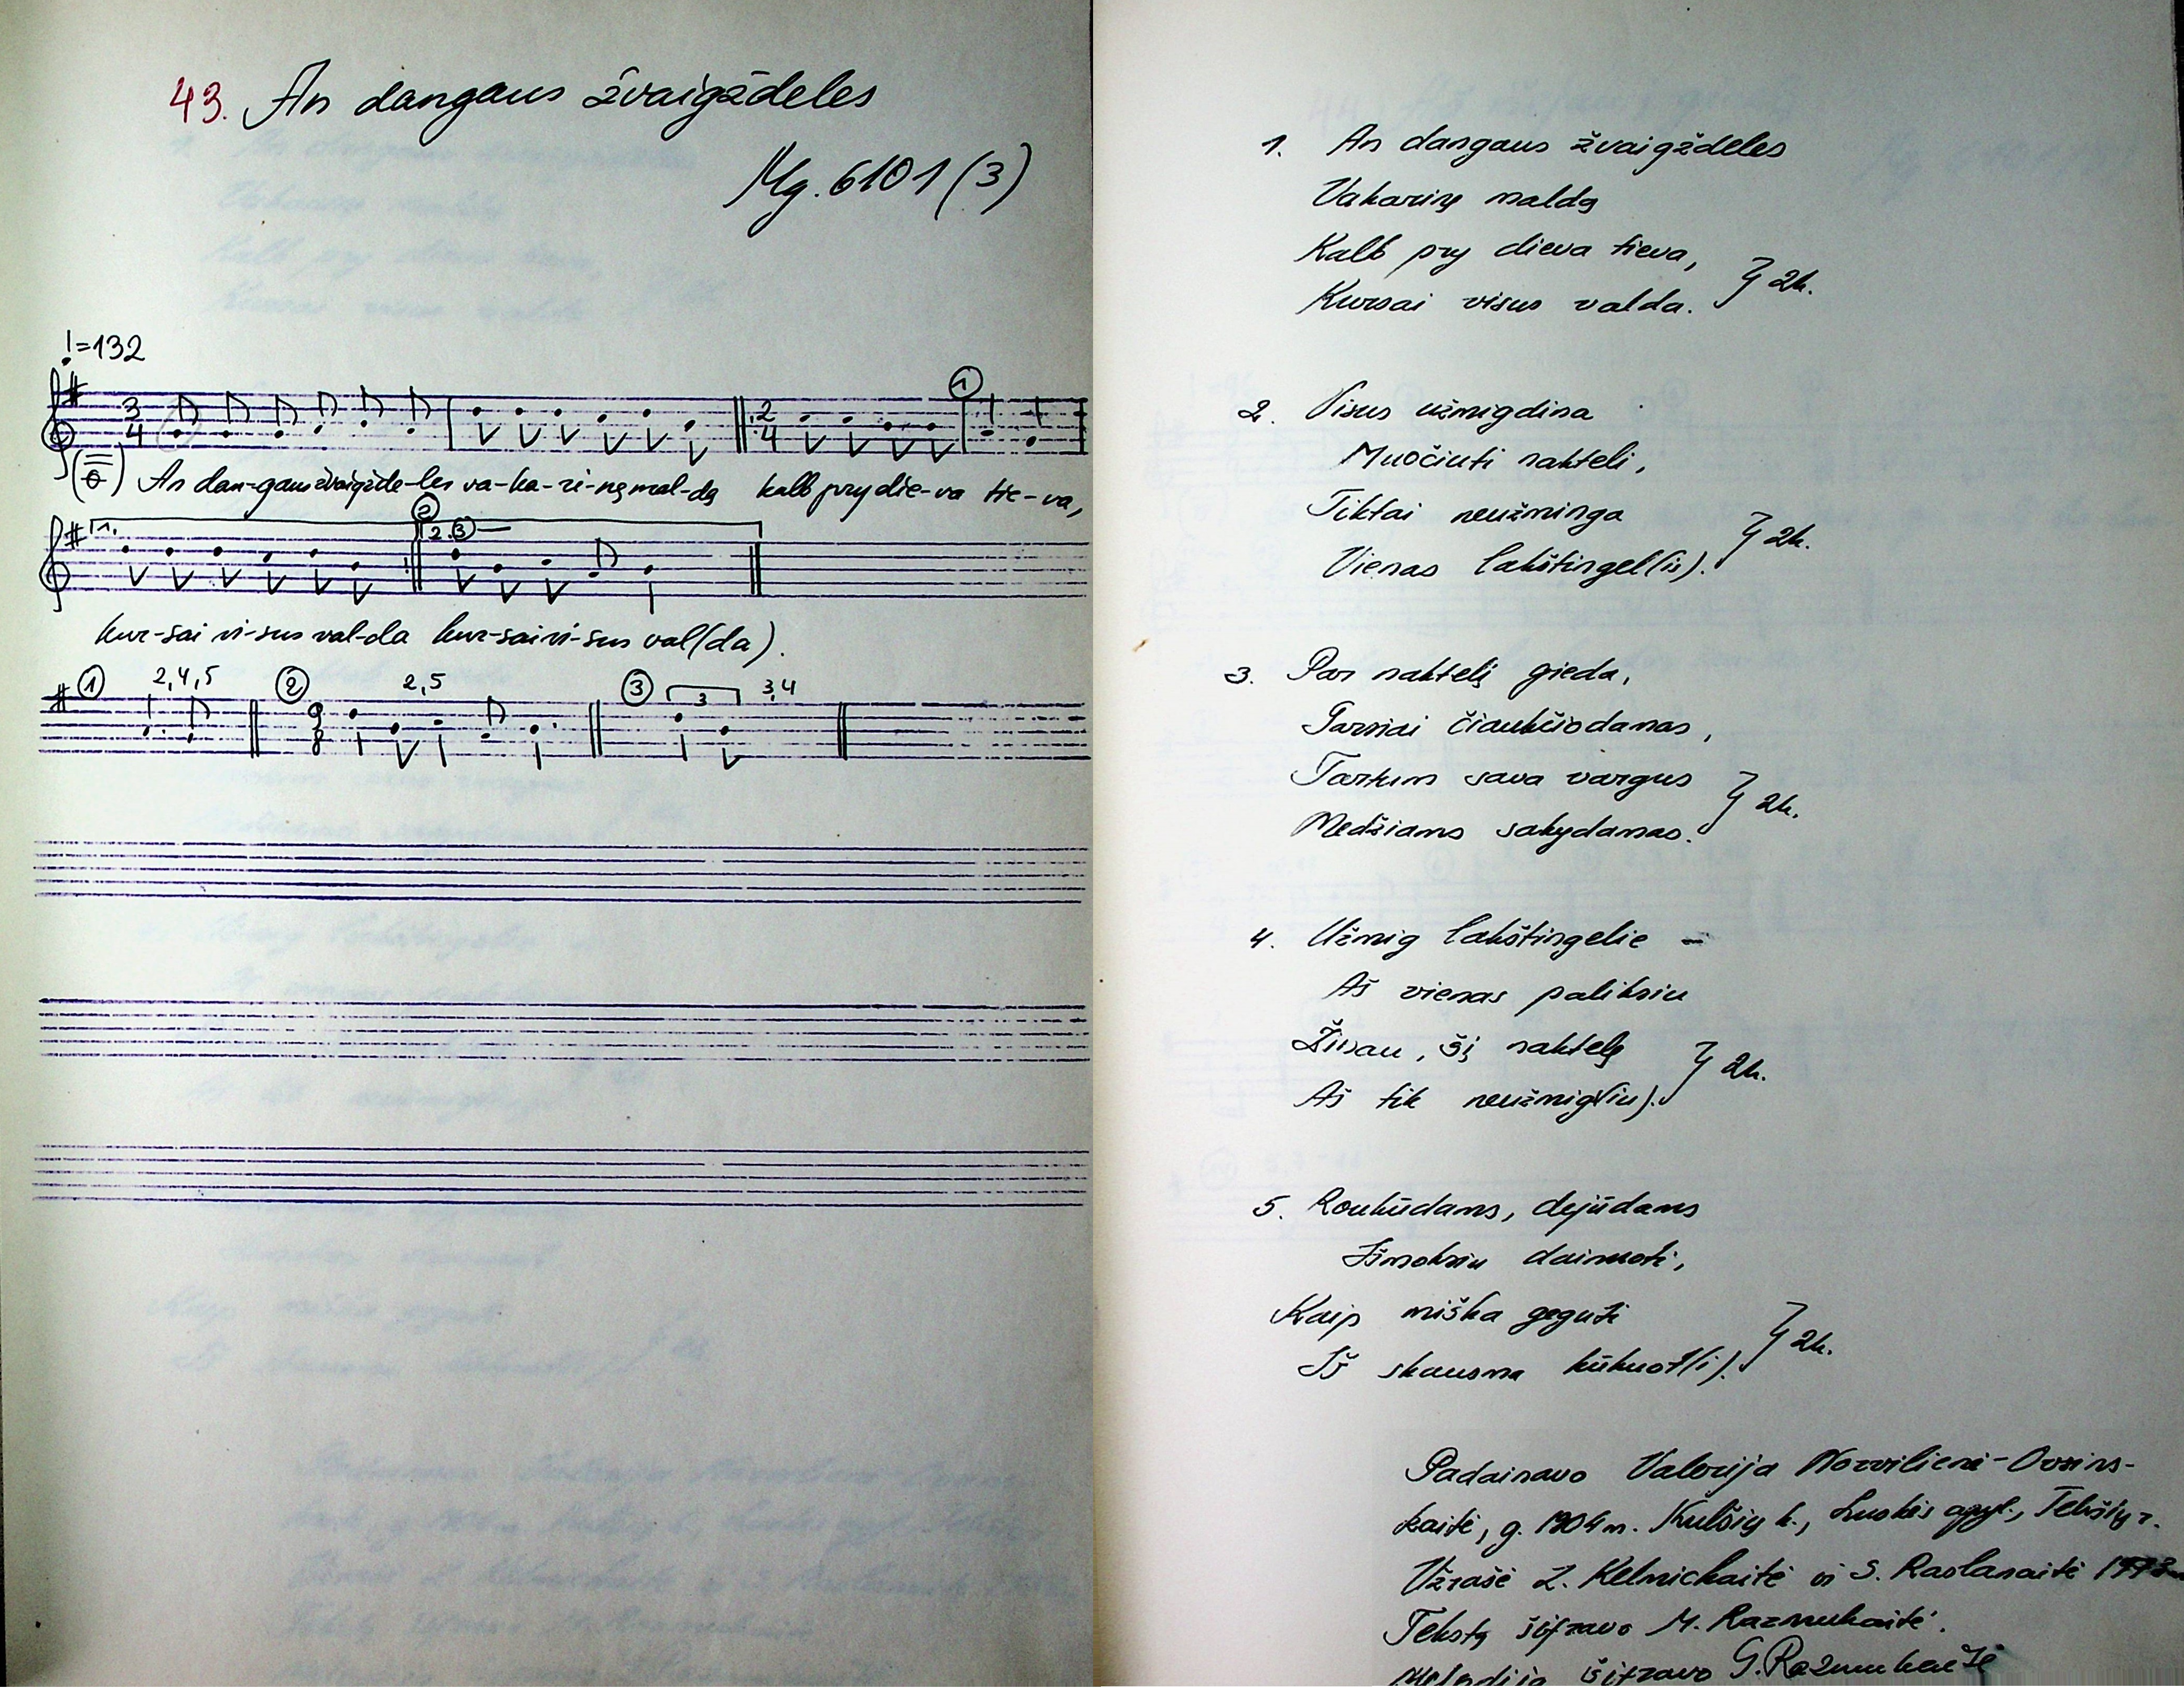 43. An dangaus žvaigždeles
Mg. 6101 (3)
♩=132
3
4
2
4
1
An dan-gaus žvaigžde-les va-ka-ri-nę mal-dą kalb pry die-va tie-va,
1.
2
2.
3
kur-sai vi-sus val-da kur-sai vi-sus val(da).
1
2,4,5
2
2,5
9
8
3
3
3,4
1. An dangaus žvaigždeles
Vakarinę maldą
Kalb pry dieva tieva,
Kursai visus valda. } 2k.
2. Visus užmigdina
Muočiuti nakteli,
Tiktai neužminga
Vienas lakštingel(is). } 2k.
3. Par naktelį gieda,
Garsiai čiaukčiodamas,
Tartum sava vargus
Medžiams sakydamas. } 2k.
4. Užmig lakštingelie –
Aš vienas paliksiu
Žinau, šį naktelę
Aš tik neužmig(siu). } 2k.
5. Roukūdams, dejūdams
Išmoksiu dainuoti,
Kaip miška geguti
Iš skausma kūkuot(i). } 2k.
Padainavo Valerija Norvilienė-
g. 1904 m. Kulšių k., Luokės apyl., Telšių r.
Užrašė L. Kelmickaitė ir S. Raslanaitė
Tekstą šifravo M. Razmukaitė.
Melodiją šifravo G. Razmukaitė